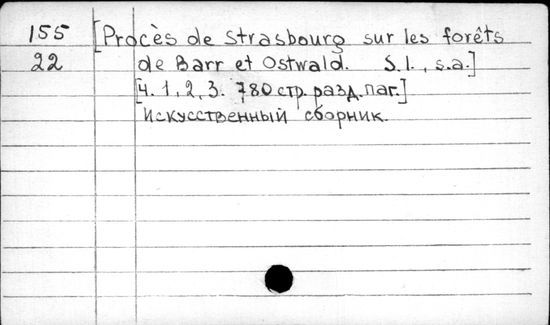 155 [Procès de Strasbourg sur les forêts
22 de Barr et Ostwald. S.l., s.a.]
[ч. 1, 2, 3. 780 стр. разд. паг.]
Искусственный сборник.